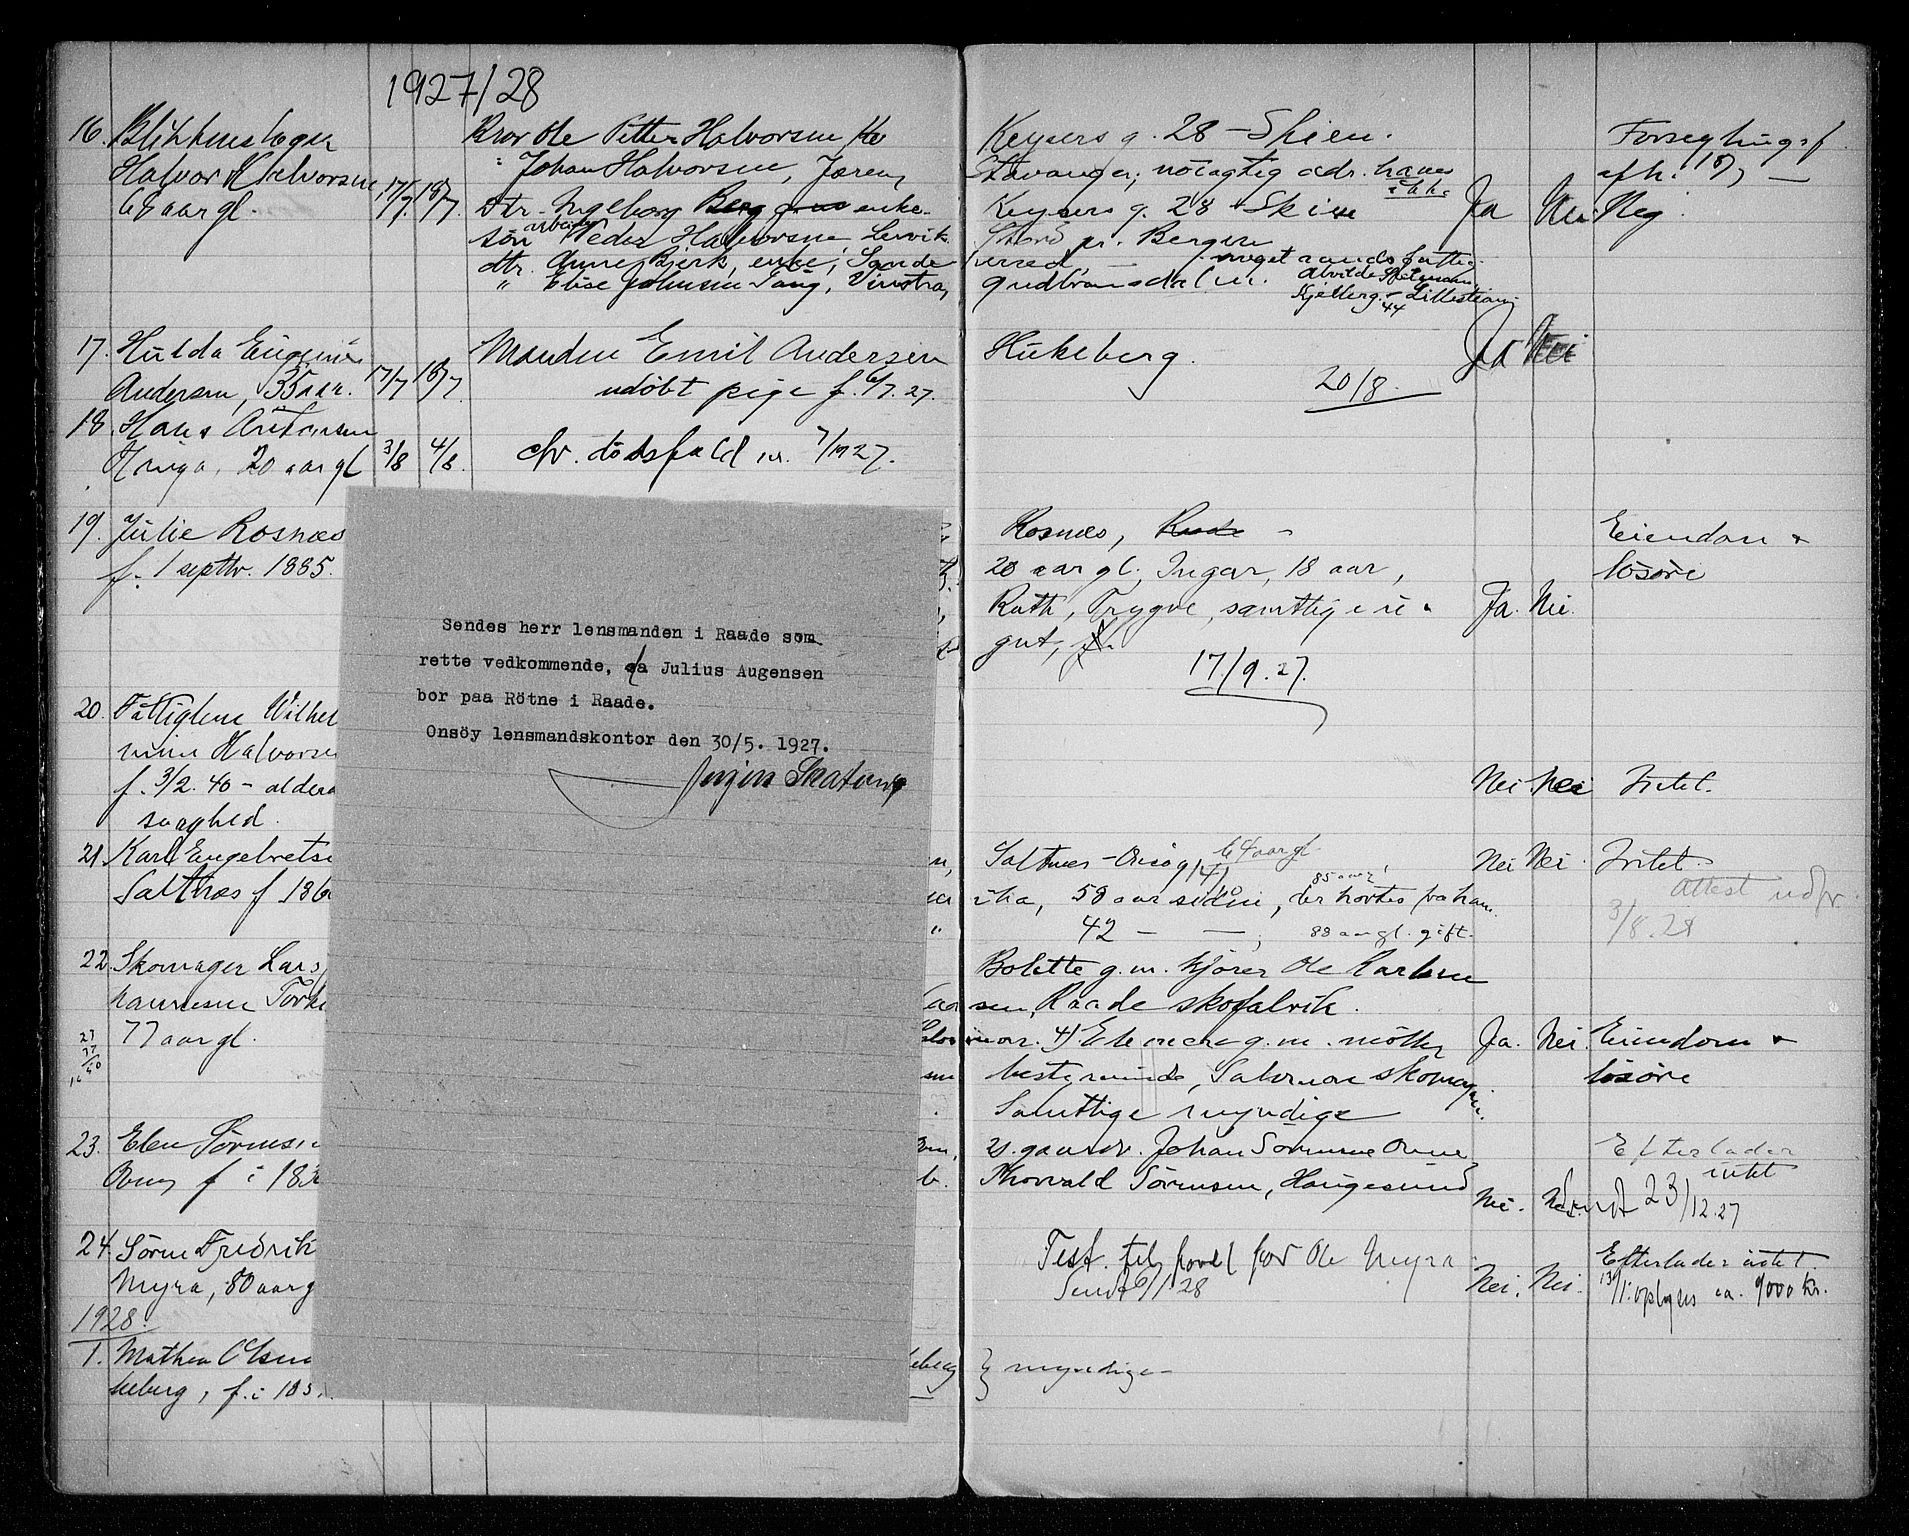 1927/28
16. Blikkenslager
Halvor Halvorsen,
68 aar gl.
17/7. 18/7.
Bror Ole Petter Halvorsen
" Johan Halvorsen, Jæren,
Dtr. Ingeborg Berg enke.
sön arbeider Peder Halvorsen Lervik
dtr. Anne Bjerk, enke, Sande
" Elise Johnsen Tang, Vinstra,
Keysers g. 28 - Skien.
Stavanger, nöiagtig adr. haves ikke
Keysers g. 28 Skien
Stord pr. Bergen
Gudbrandsdalen.
Lilleström
44
Ja Nei Nei.
Forseglingsf.
afh. 18/7 -
17. Hulda Eugenie
Andersen, 35 aar.
17/7 18/7.
Manden Emil Andersen
udöbt pige f. 6/7. 27.
Hukeberg.
20/8.
Ja Nei
18. Hans Antonsen
Hauga, 20 aar gl
3/8 4/8.
cfr. dödsfald nr. 7/1927.
19. Julie Rosnæs
f. 1 septbr. 1885.
Rosnæs, Raade -
20 aar gl., Ingar, 18 aar,
Ruth, Trygve, samtlige
gut,
17/9. 27.
Ja. Nei.
Eiendom &
lösöre
Sendes herr lensmanden i Raade som
rette vedkommende, da Julius Augensen
bor paa Rötne i Raade.
Onsöy lensmandskontor den 30/5. 1927.
20. Fattiglem Wilhel
mine Halvorse
f. 3/2. 40 - alderd
svaghed.
Nei Nei Intet.
21 Karl Engelretse
Saltnæs f 186
Saltnes - Onsög 64 aar gl
58 aar siden, der hörtes fra ham.
85 aar
42 - -, 88 aar gl. gift.
Nei Nei. Intet.
Attest udfr.
3/8. 28
22. Skomager Lars
hannesen Tork
77 aar gl.
Bolette g.m. kjører Ole Karlsen
sen, Raade skofabrik.
4) Elenore g.m. mölle
bestyrende, Salomon skomager.
Samtlige myndige
Ja. Nei. Eiendom &
lösöre
23. Elen Sørense
Ovny f i 183
2) gaardbr. Johan Sørensen Ovne
Thorvald Sørensen, Haugesund
Nei. Nei.
Efterlader
intet
Sendt 23/12.27
24. Sörne Fredrik
Myra, 80 aar g
Test. til fordel for Ole Myra
Sendt 9/1 28
Nei. Nei.
Efterlader intet.
13/1: oplyses ca. 9000 kr.
1928.
1. Mathea Olsen
keberg, f. i 185
} myndige -